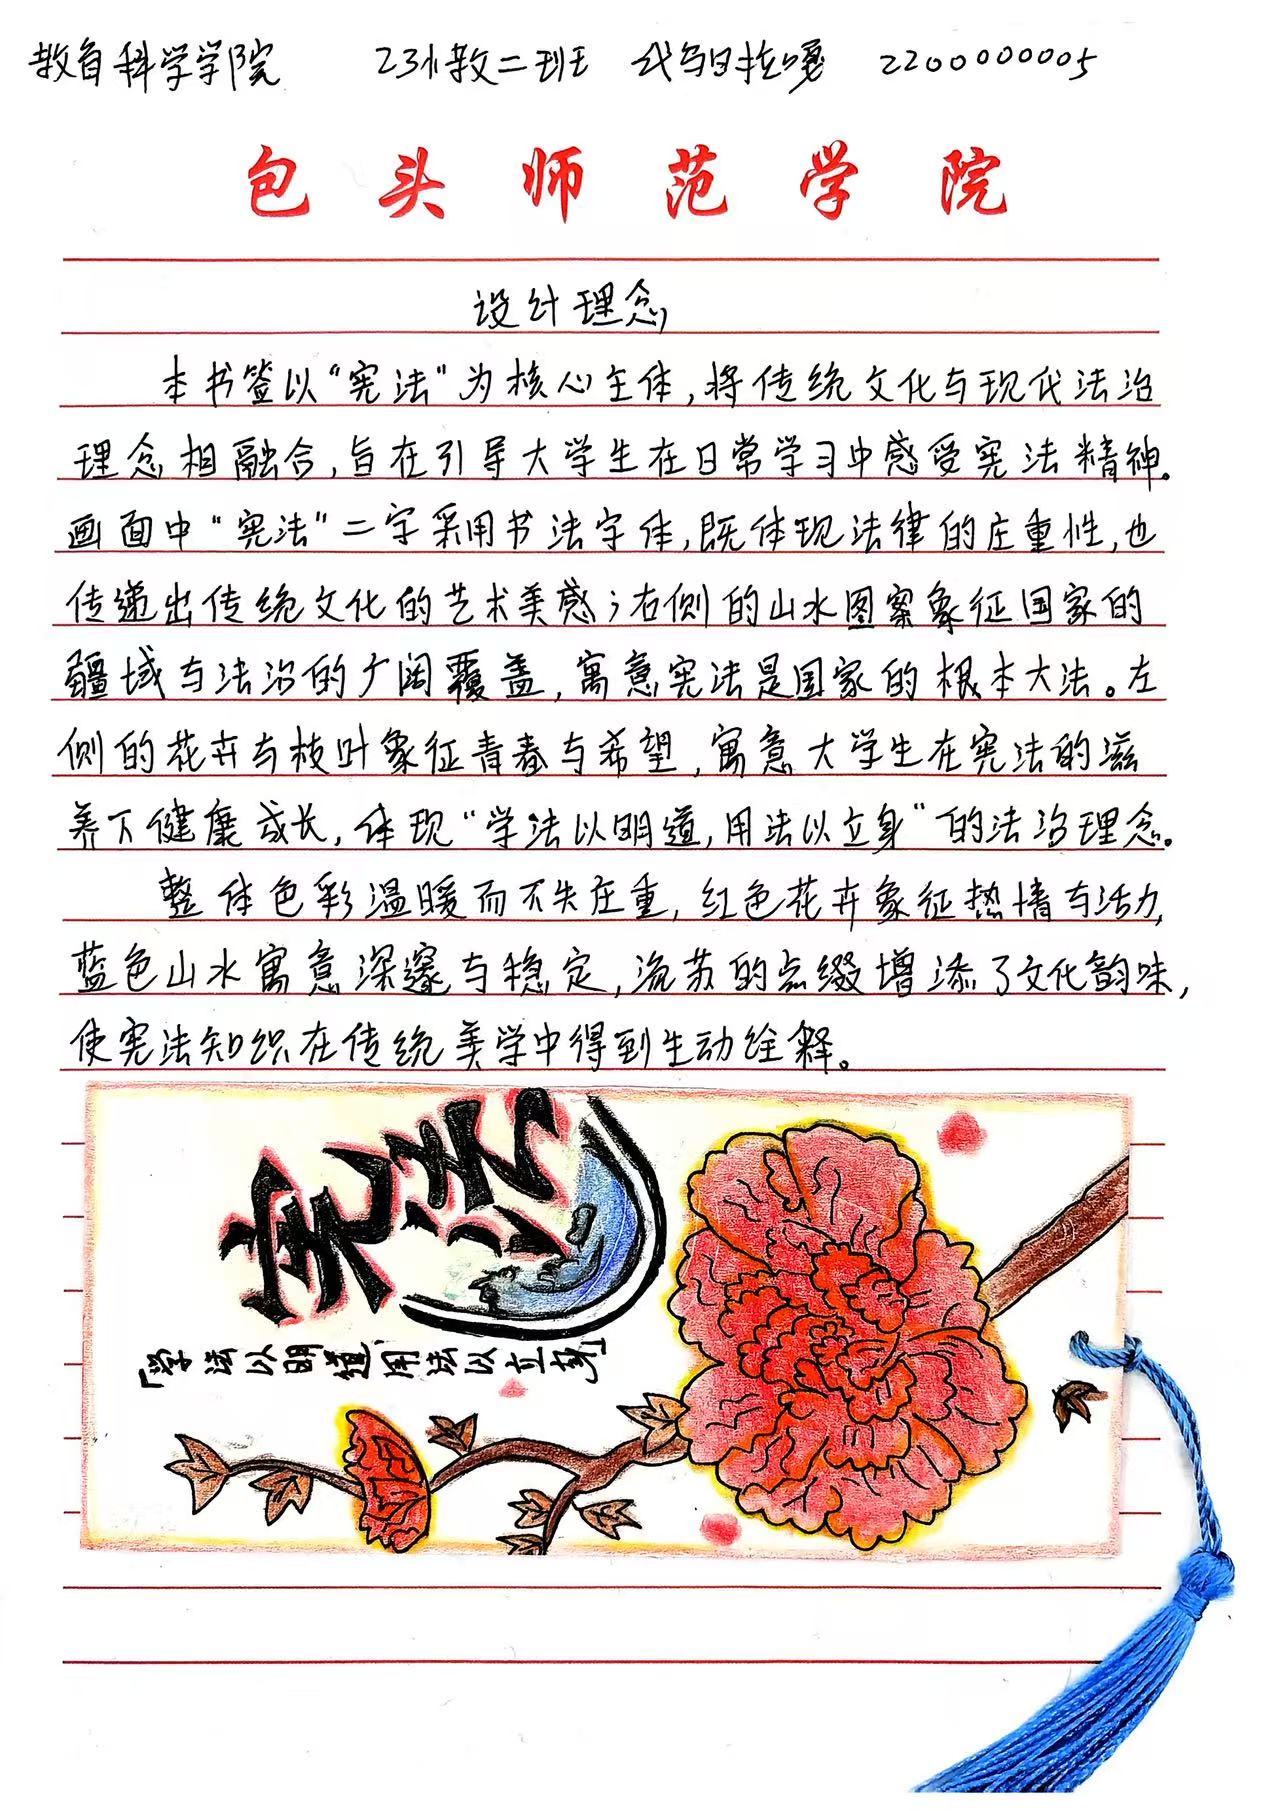 教育科学学院 23小教二班 代乌日拉嘎 2200000005
包头师范学院
设计理念
本书签以“宪法”为核心主体,将传统文化与现代法治
理念相融合,旨在引导大学生在日常学习中感受宪法精神。
画面中“宪法”二字采用书法字体,既体现法律的庄重性,也
传递出传统文化的艺术美感;右侧的山水图案象征国家的
疆域与法治的广阔覆盖,寓意宪法是国家的根本大法。左
侧的花卉与枝叶象征青春与希望,寓意大学生在宪法的滋
养下健康成长,体现“学法以明道,用法以立身”的法治理念。
整体色彩温暖而不失庄重,红色花卉象征热情与活力,
蓝色山水寓意深邃与稳定,流苏的点缀增添了文化韵味,
使宪法知识在传统美学中得到生动诠释。
宪法
「学法以明道,用法以立身」